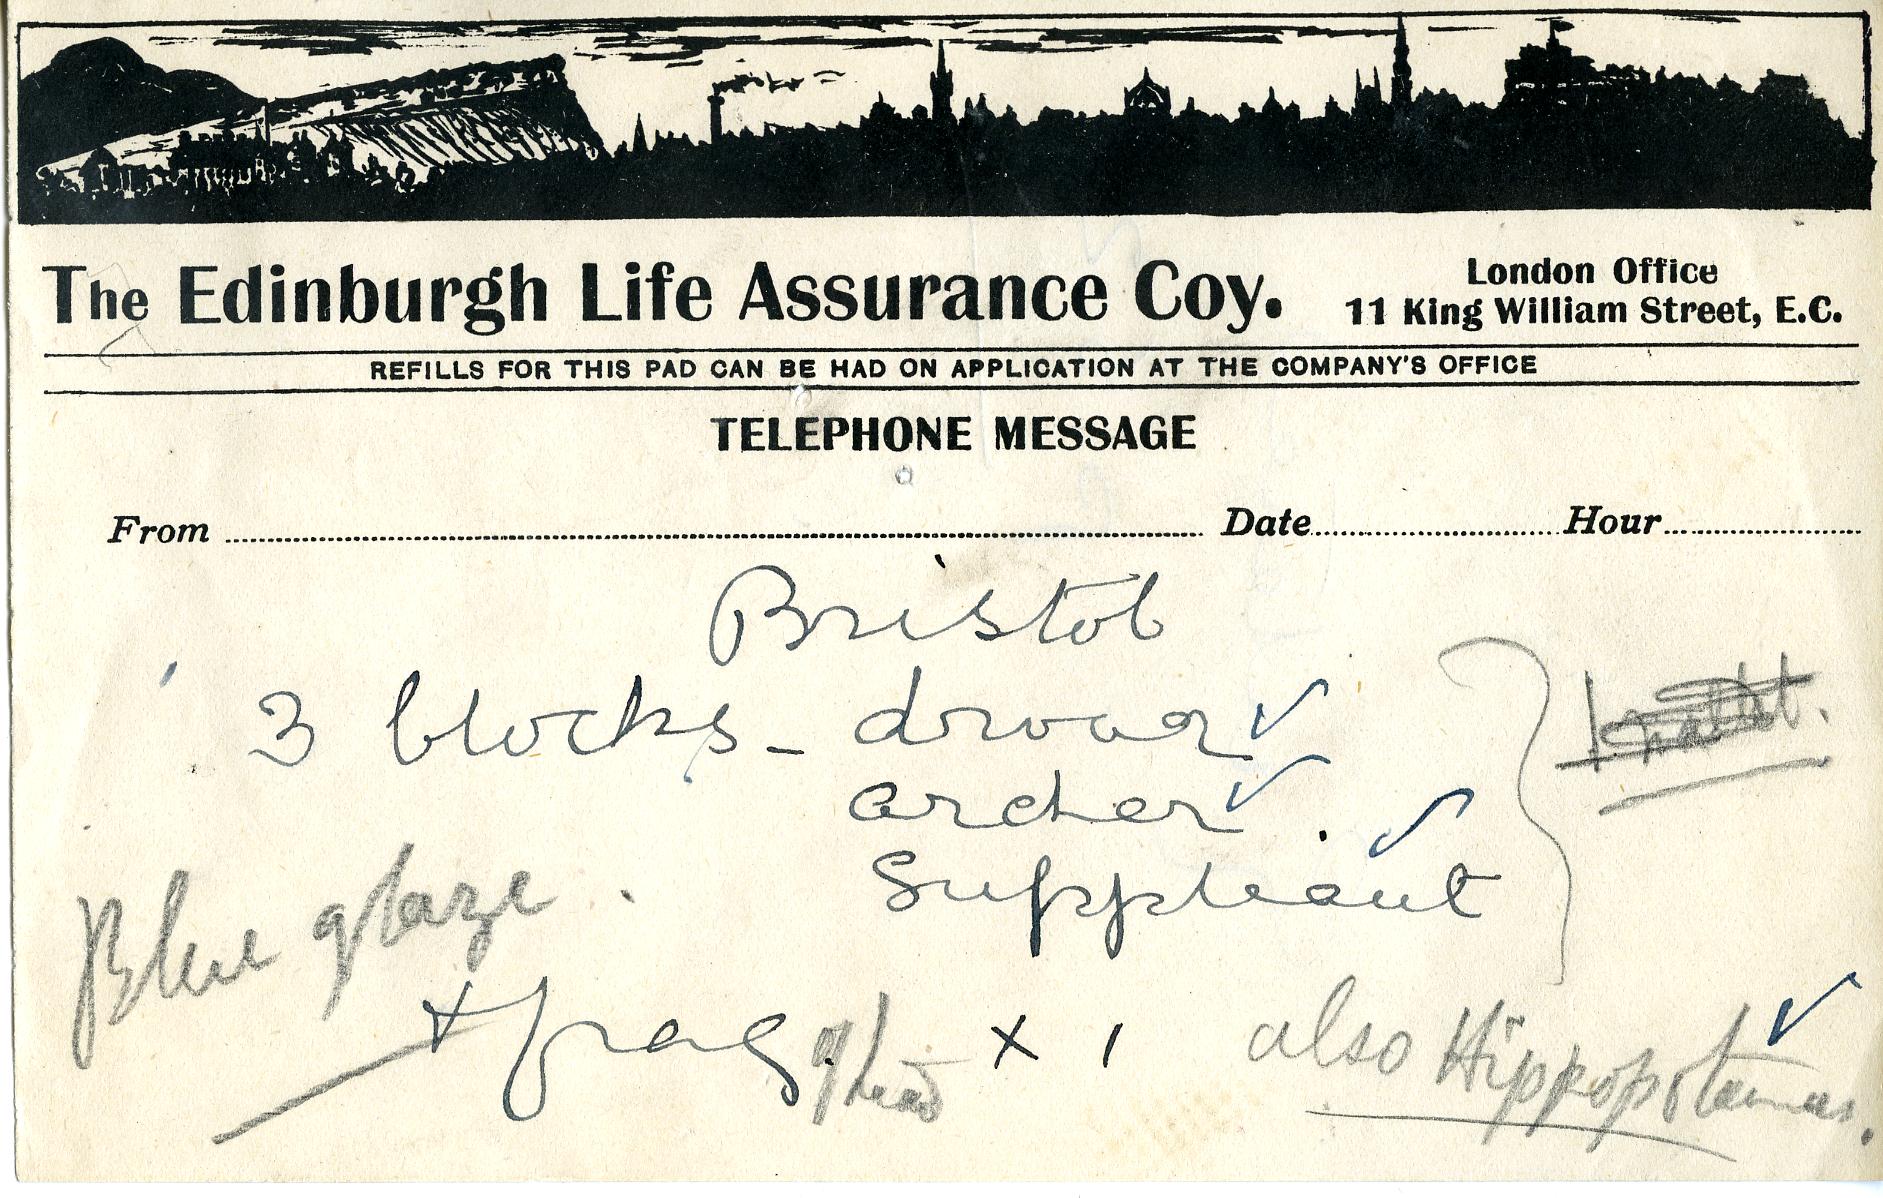 The Edinburgh Life Assurance Coy.
London Office
11 King William Street, E.C.
REFILLS FOR THIS PAD CAN BE HAD ON APPLICATION AT THE COMPANY'S OFFICE
TELEPHONE MESSAGE
From Date Hour
Bristol
3 blocks - drover ✓
archer ✓
Suppliant ✓
Blue glaze.
+ frag. of head × 1
also Hippopotamus. ✓